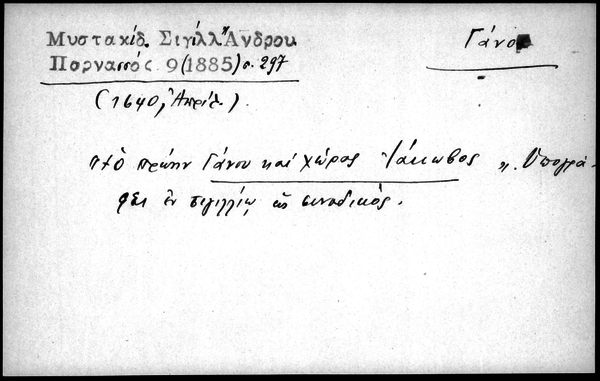 Μυστακίδ. Σιγίλλ. Ἄνδρου
Παρνασσός 9(1885) σ. 297
Γάνου
(1640, Ἀπρίλ.)
"+Ὁ πρώην Γάνου καὶ χώρας Ἰάκωβος". Ὑπογρά-
φει ἐν σιγιλλίῳ ὡς συνοδικός.